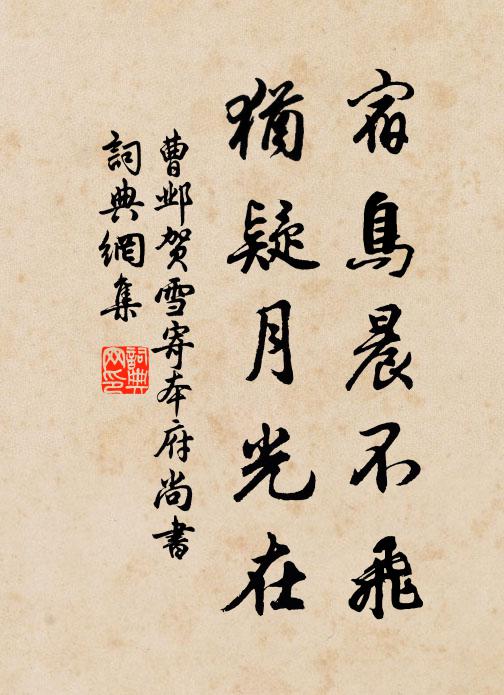 宿鳥晨不飛
猶疑月光在
曹邺贺雪寄本府尚書
詞典網集
詞典網印